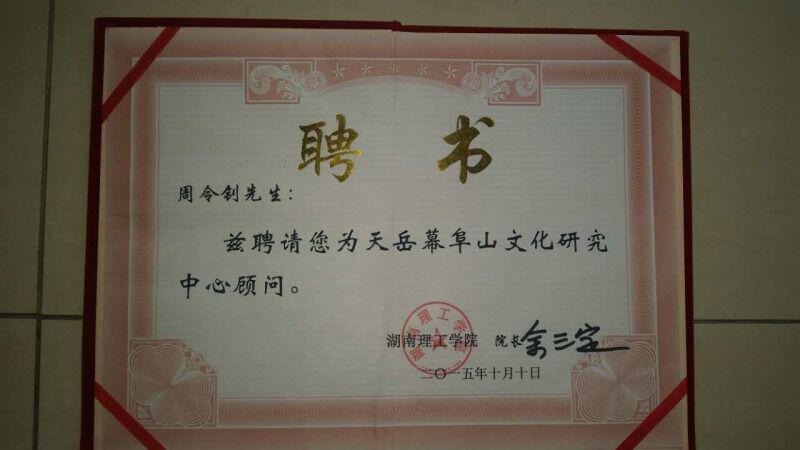 聘书
周令钊先生：
兹聘请您为天岳幕阜山文化研究
中心顾问。
湖南理工学院 院长 余三定
湖南理工学院
二〇一五年十月十日